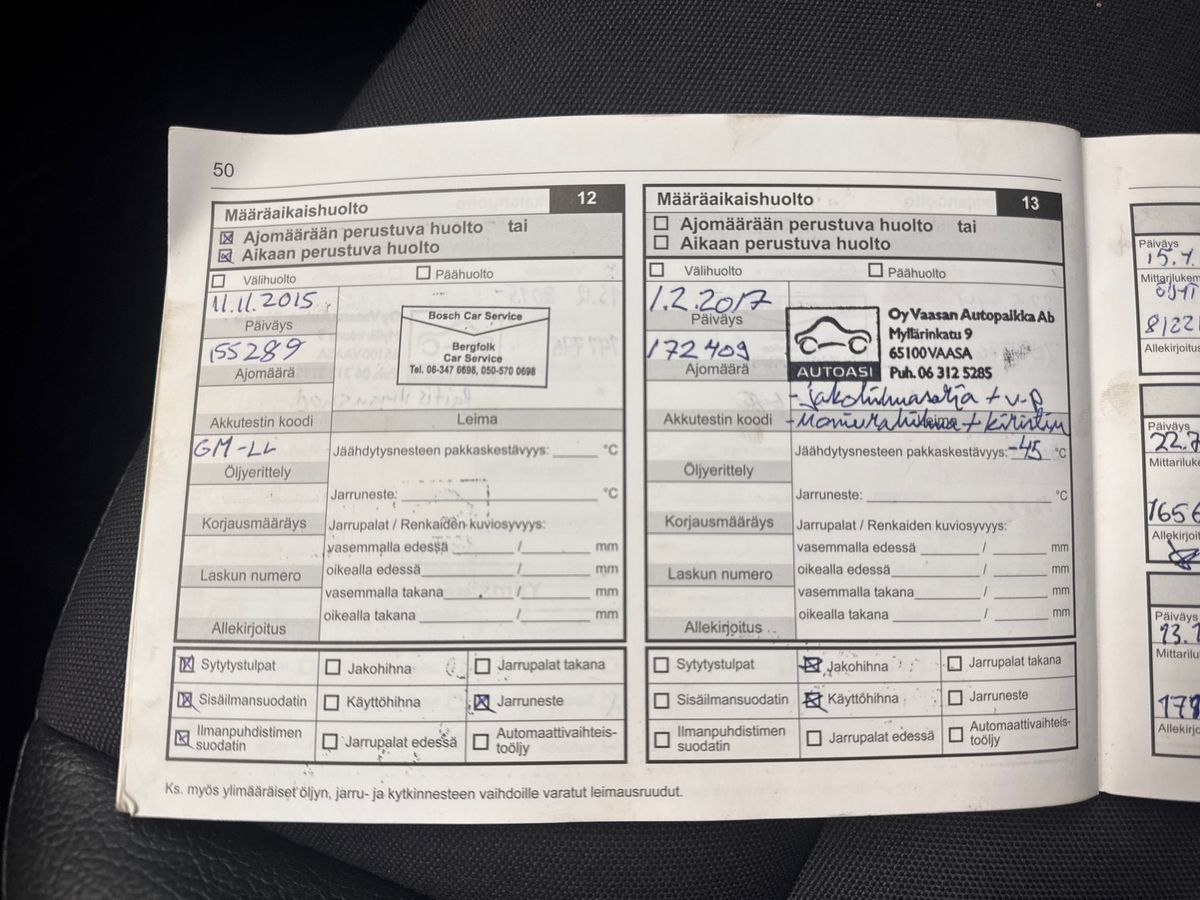 50
Määräaikaishuolto 12
Ajomäärään perustuva huolto tai
Aikaan perustuva huolto
Välihuolto Päähuolto
11.11.2015
Päiväys
155289
Ajomäärä
Bosch Car Service
Bergfolk
Car Service
Tel. 06-347 6698, 050-570 0698
Akkutestin koodi Leima
GM-LL
Öljyerittely
Jäähdytysnesteen pakkaskestävyys: °C
Jarruneste: °C
Korjausmääräys
Jarrupalat / Renkaiden kuviosyvyys:
vasemmalla edessä / mm
Laskun numero
oikealla edessä / mm
vasemmalla takana / mm
oikealla takana / mm
Allekirjoitus
Sytytystulpat Jakohihna Jarrupalat takana
Sisäilmansuodatin Käyttöhihna Jarruneste
Ilmanpuhdistimen suodatin Jarrupalat edessä Automaattivaihteis-
toöljy
Määräaikaishuolto 13
Ajomäärään perustuva huolto tai
Aikaan perustuva huolto
Välihuolto Päähuolto
1.2.2017
Päiväys
172409
Ajomäärä
AUTOASI
Oy Vaasan Autopaikka Ab
Myllärinkatu 9
65100 VAASA
Puh. 06 312 5285
- jakohihnasarja + v-p
- Moniurahihna + kiristin
Akkutestin koodi Leima
Jäähdytysnesteen pakkaskestävyys: -45 °C
Öljyerittely
Jarruneste: °C
Korjausmääräys
Jarrupalat / Renkaiden kuviosyvyys:
vasemmalla edessä / mm
Laskun numero
oikealla edessä / mm
vasemmalla takana / mm
oikealla takana / mm
Allekirjoitus
Sytytystulpat Jakohihna Jarrupalat takana
Sisäilmansuodatin Käyttöhihna Jarruneste
Ilmanpuhdistimen suodatin Jarrupalat edessä Automaattivaihteis-
toöljy
Ks. myös ylimääräiset öljyn, jarru- ja kytkinnesteen vaihdoille varatut leimausruudut.
Päiväys
Mittarilukem
8122
Allekirjoitus
Päiväys
22.7
Mittariluke
1656
Allekirjoit
Päiväys
13.1
Mittariluk
178
Allekirjo